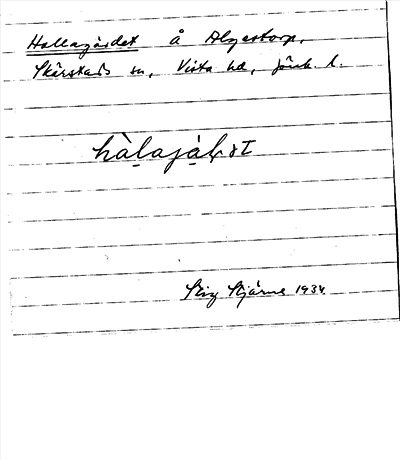 Hallagärdet å Älgestorp,
Skärstads sn, Vista hd, Jönk. l.
Stig Stjärne 1934